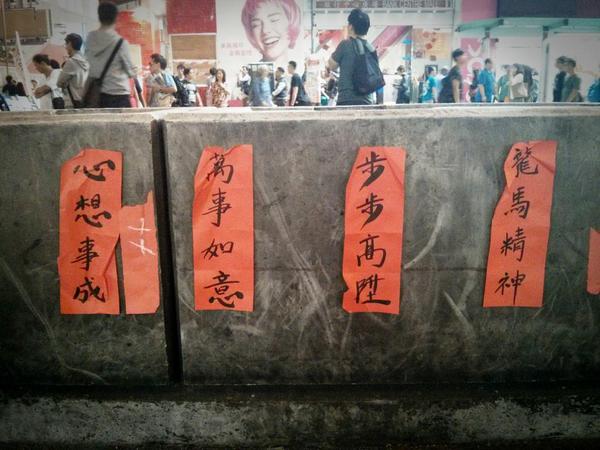 心想事成
萬事如意
步步高陞
龍馬精神